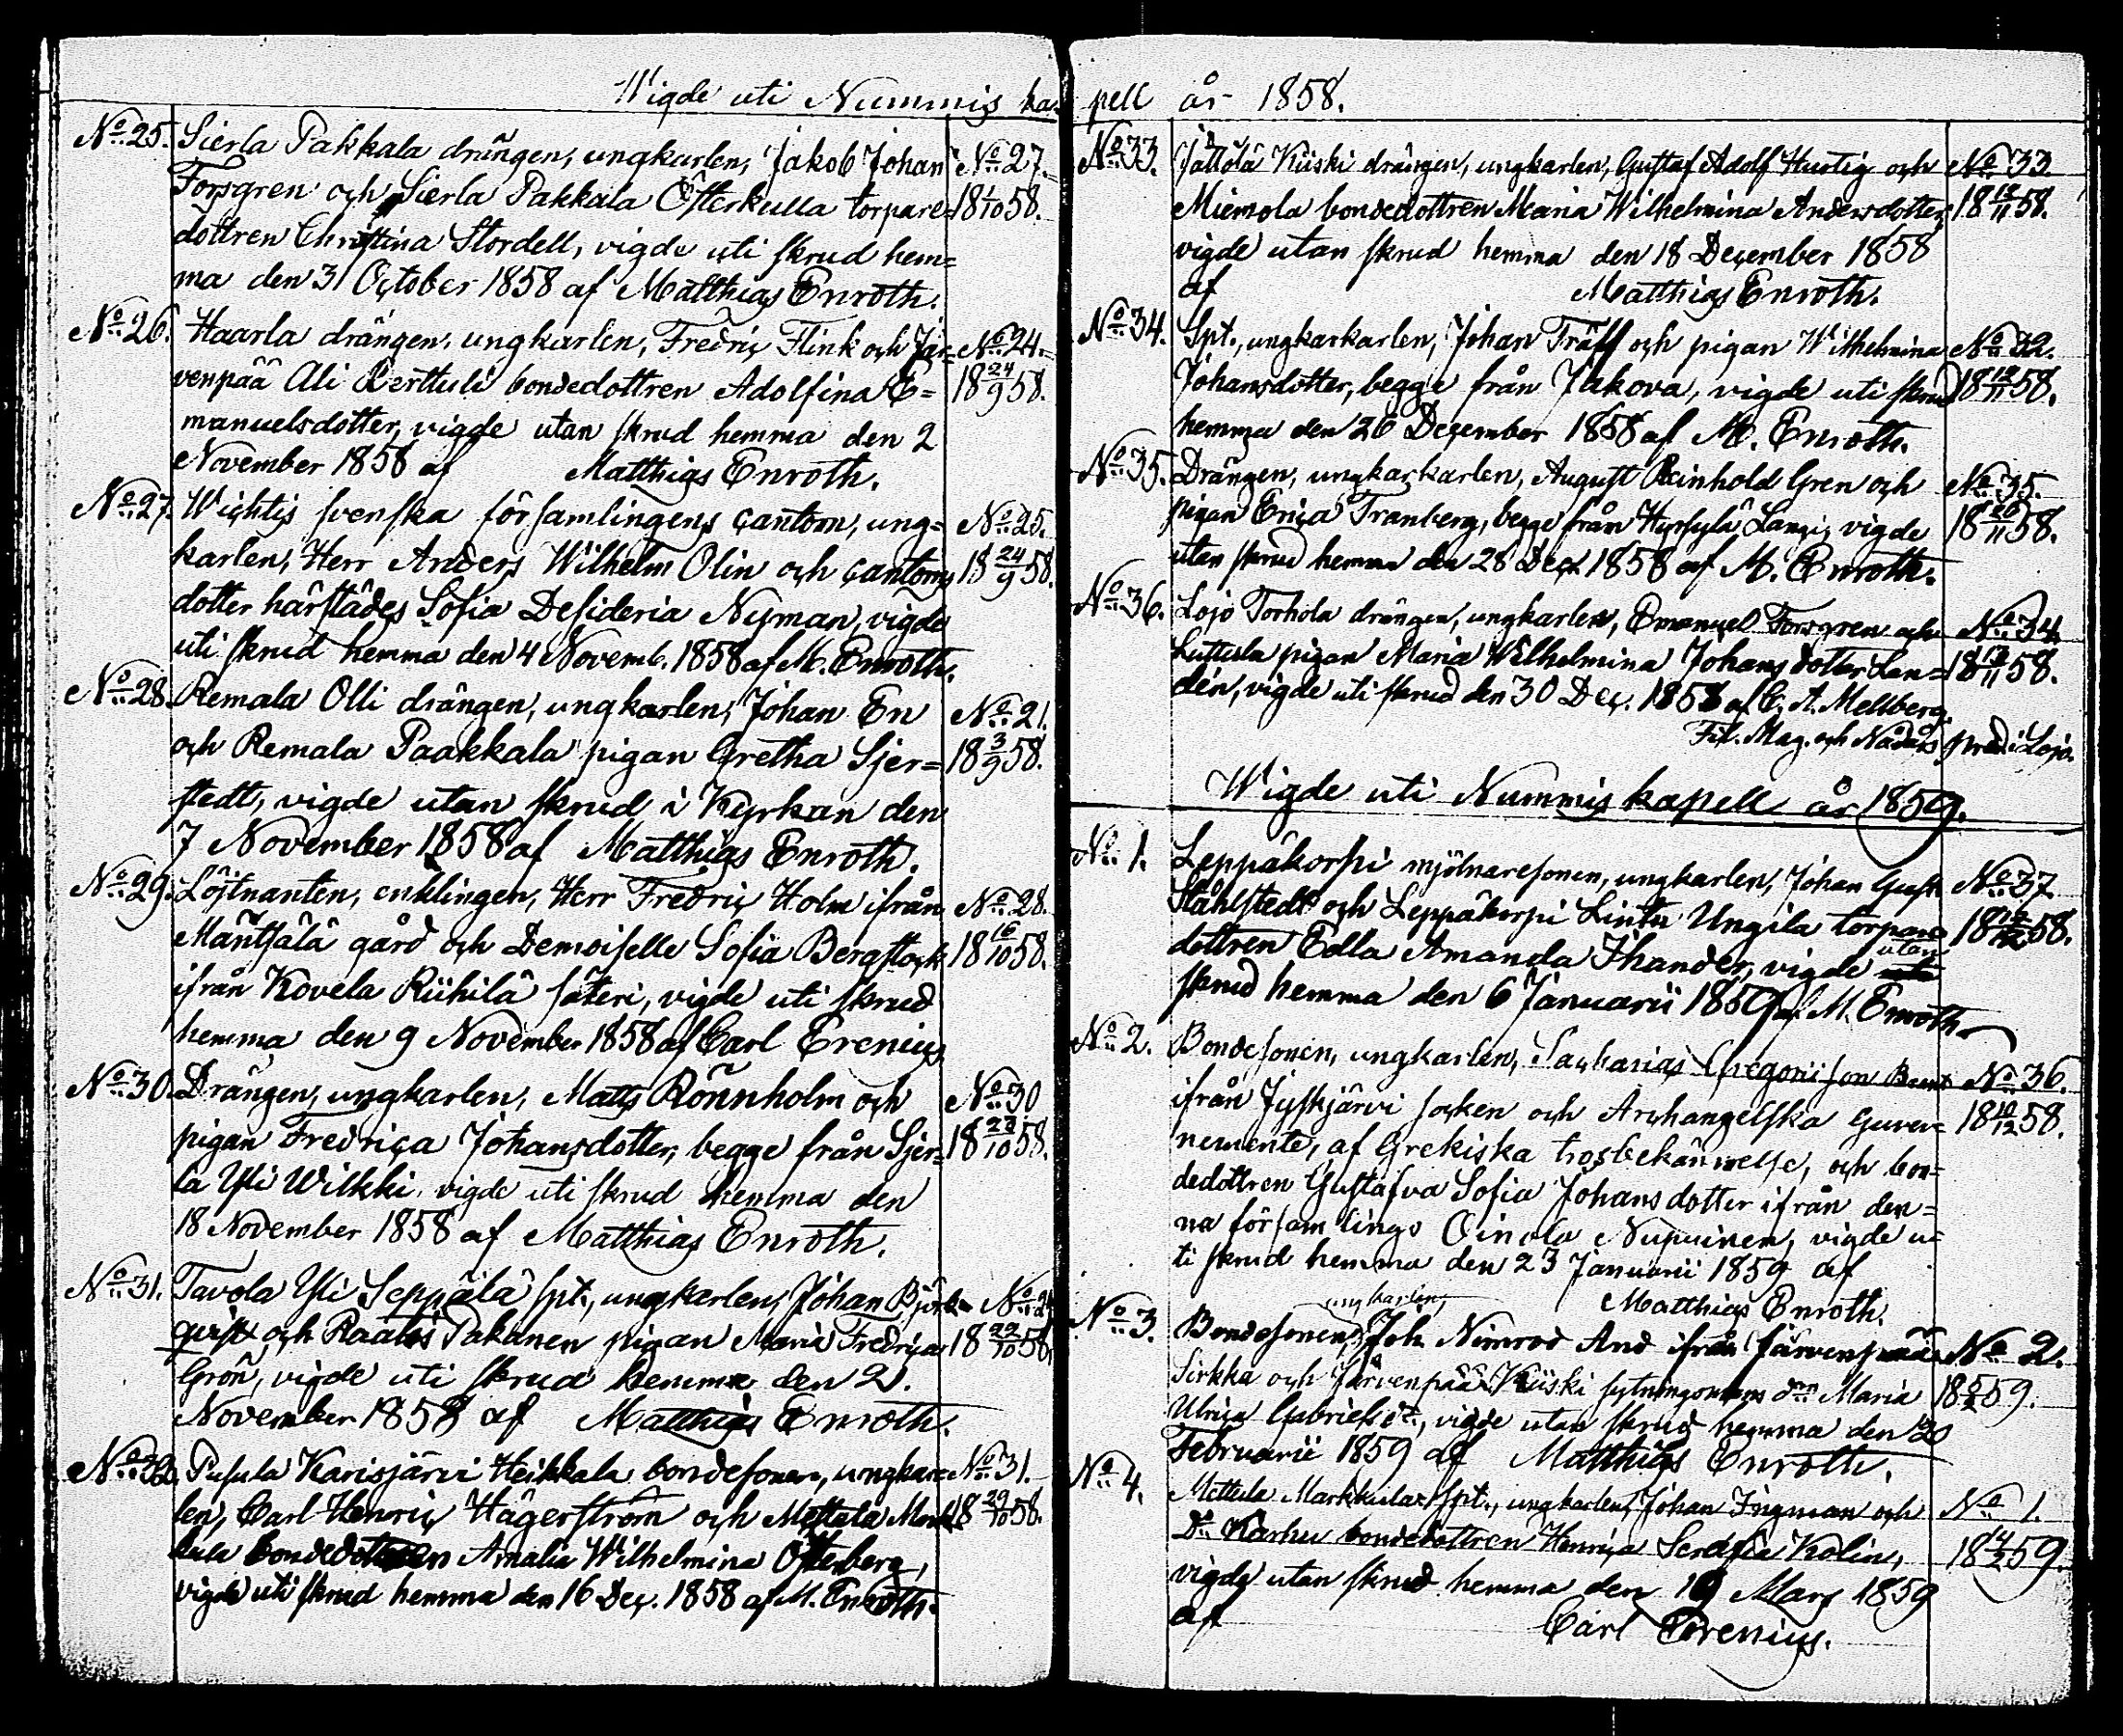 Wigde uti Nummis ka-
No 25. Sierla Pakkala drängen, ungkarlen, Jakob Johan No 27.
Forsgren och Sierla Pakkala Österkulla torpare- 18 1/10 58.
dottren Christina Stordell, vigde uti skrud hem=
ma den 31 October 1858 af Matthias Enroth.
No 26. Haarla drängen, ungkarlen, Fredric Flink och Jär- No 24.
venpää Ali Perttuli bondedottren Adolfina E= 18 24/9 58.
manuelsdotter, vigde utan skrud hemma den 2
November 1858 af Matthias Enroth.
No 27. Wichtis svenska församlingens cantorn, ung= No 25.
karlen, Herr Anders Wilhelm Olin och cantorns 18 24/9 58.
dotter härstädes Sofia Desideria Nyman, vigde
uti skrud hemma den 4 Novemb. 1858 af M. Enroth.
No 28. Remala Olli drängen, ungkarlen, Johan En No 21.
och Remala Paakkala pigan Gretha Sjer= 18 3/9 58.
stedt, vigde utan skrud i Kyrkan den
7 November 1858 af Matthias Enroth.
No 29. Löjtnanten, enklingen, Herr Fredric Holm ifrån No 28.
Mäntsälä gård och Demoiselle Sofia Bergstock 18 16/10 58.
ifrån Kovela Riihilä säteri, vigde uti skrud
hemma den 9 November 1858 af Carl Erenius
No 30. Drängen, ungkarlen, Matts Rönnholm och No 30
pigan Fredrica Johansdotter, begge från Sjer= 18 23/10 58.
la Yli Wilkki, vigde uti skrud hemma den
18 November 1858 af Matthias Enroth.
No 31. Tavola Yli Seppälä spt., ungkarlen, Johan Björk- No 29
qvist och Raatis Pakanen pigan Maria Fredrica 18 22/10 58.
Grön, vigde uti skrud hemma den 2.
November 1858 af Matthias Enroth.
No 32. Pusula Karisjärvi Heikkala bondesonen, ungkar= No 31.
len, Carl Henric Hägerström och Mettula Mark 18 29/10 58.
kula bondedottren Amalia Wilhelmina Österberg,
vigde uti skrud hemma den 16 Dec. 1858 af M. Enroth.
pell år 1858.
No 33. Jättölä Kiiski drängen, ungkarlen, Gustaf Adolf Hurtig och No 33
Miemola bondedottren Maria Wilhelmina Andersdotter, 18 12/11 58.
vigde utan skrud hemma den 18 December 1858
af Matthias Enroth.
No 34. Spt., ungkarkarlen, Johan Träff och pigan Wilhelmina No 32.
Johansdotter, begge från Jakova, vigde uti skrud 18 12/11 58.
hemma den 26 December 1858 af M. Enroth.
No 35. Drängen, ungkarkarlen, August Reinhold Gren och No 35.
pigan Erica Tranberg, begge från Hyrsylä Langi, vigde 18 26/11 58.
utan skrud hemma den 28 Dec. 1858 af M. Enroth.
No 36. Lojo Torhola drängen, ungkarlen, Emanuel Forsgren och No 34
Luttula pigan Maria Wilhelmina Johans dotter Lan= 18 13/11 58.
dén, vigde uti skrud den 30 Dec. 1858 af C. A. Mellberg
Fil. Mag. och Nådårs pred. i Lojo.
Wigde uti Nummis kapell år 1859.
No 1. Leppäkorpi mjölnaresonen, ungkarlen, Johan Gust. No 37
Ståhlstedt och Leppäkorpi Lintu Ungila torpare 18 12/12 58.
dottren Edla Amanda Ihander, vigde utan
skrud hemma den 6 Januarii 1859 af M. Enroth.
No 2. Bondesonen, ungkarlen, Sacharias Gregorii son Bunt No 36.
ifrån Jyskjärvi socken och Archangelska Guver= 18 10/12 58.
nemente, af Grekiska trosbekännelse, och bon=
dedottren Gustafva Sofia Johans dotter ifrån den=
na församlings Oinola Nupuinen, vigde u=
ti skrud hemma den 23 Januarii 1859 af
Matthias Enroth.
ungkarlen,
No 3. Bondesonen, Joh. Nimrod And ifrån Järvenpää No 2.
Sirkka och Järvenpää Kiiski sytningsmans dn Maria 18 5/2 59.
Ulrica Gabriels dr, vigde utan skrud hemma den 20
Februarii 1859 af Matthias Enroth.
No 4. Mettula Markkula spt., ungkarlen, Johan Ingman och No 1.
Do Karhu bondedottren Henrica Serafia Kolin, 18 14/2 59.
vigde utan skrud hemma den 19 Mars 1859
af Carl Erenius.